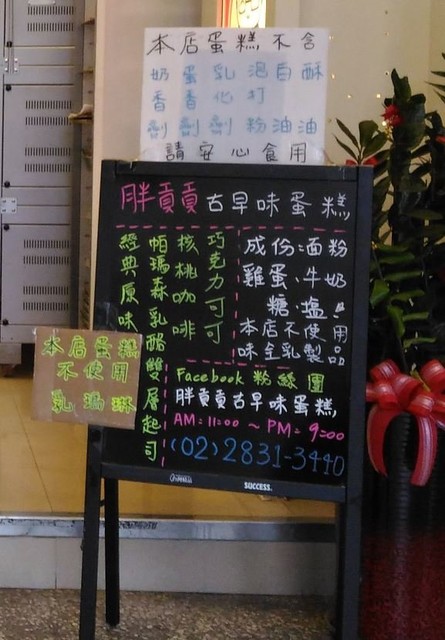 本店蛋糕不含
奶香劑 蛋香劑 乳化劑 泡打粉 白油 酥油
請安心食用
胖貢貢古早味蛋糕
巧克力可可
核桃咖啡
帕瑪森乳酪雙層起司
經典原味
成份:面粉
雞蛋·牛奶
糖·鹽
本店不使用
味全乳製品
Facebook 粉絲團
胖貢貢古早味蛋糕,
AM=11:00 ~ PM=9:00
(02)2831-3440
SUCCESS.
本店蛋糕
不使用
乳瑪琳